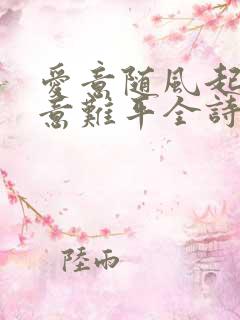 愛意随風起
意難平全詩
陸雨